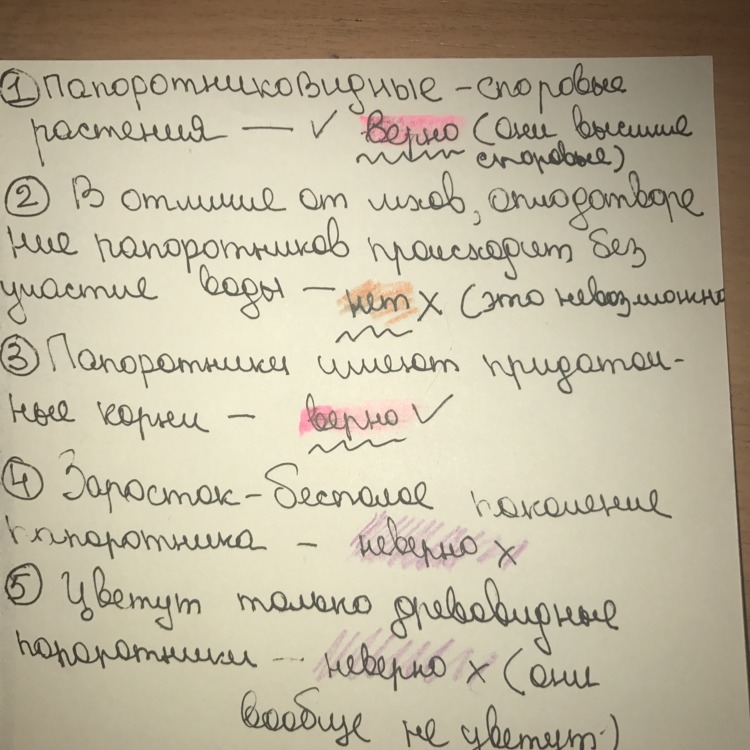 ① Папоротниковидные - споровые
растения — ✓ верно (они высшие
споровые)
② В отличие от мхов, оплодотворе
ние папоротников происходит без
участие воды — нет X (это невозможно
③ Папоротники имеют придаточ-
ные корни — верно ✓
④ Заросток - бесполое поколение
папоротника - неверно X
⑤ Цветут только древовидные
папоротники -- неверно X (они
вообще не цветут.)